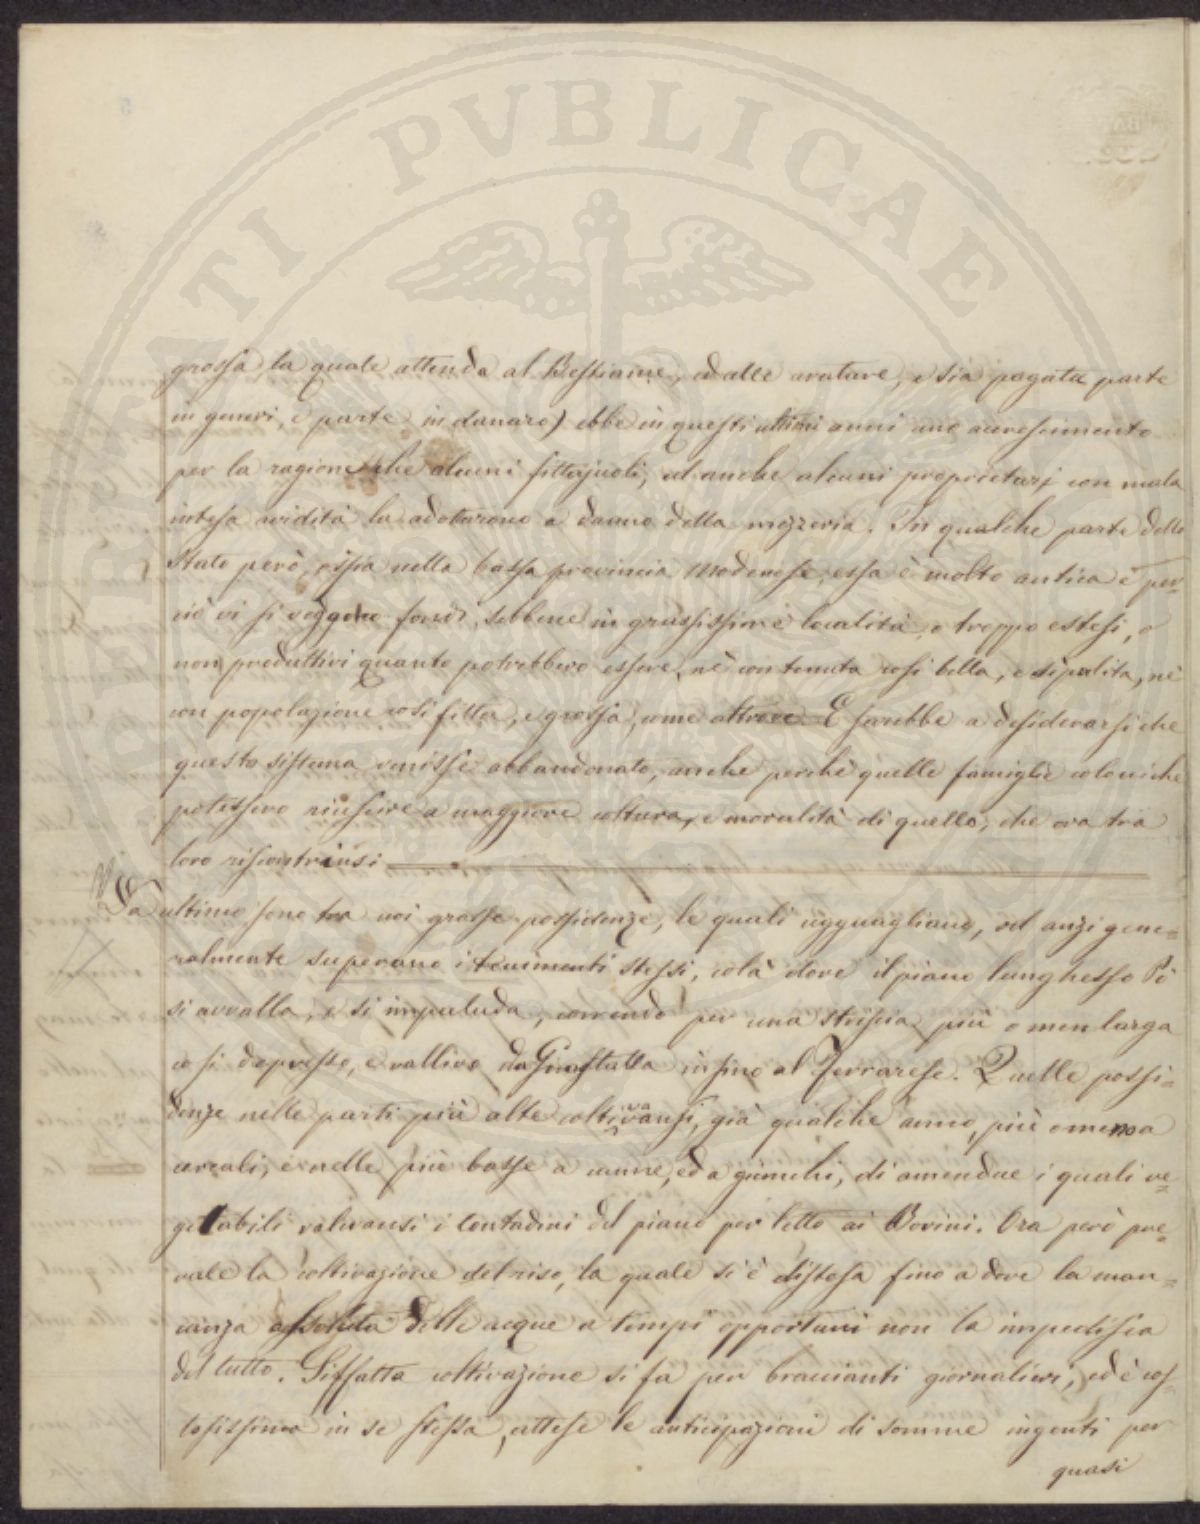 PUBLICAE
grossa, la quale attenda al Bestiame, ed alle arature, e sia pagata parte
in generi, e parte in danaro) ebbe in questi ultimi anni uno accrescimento
per la ragione che alcuni fittajuoli, ed anche alcuni proprietarj con mala
intesa avidità la adottarono a danno della mezzeria. In qualche parte dello
Stato però, ossia nella bassa provincia Modenese, essa è molto antica e per=
ciò vi si veggono fondi, sebbene in grassissime località, o troppo estesi, o
non produttivi quanto potrebbero essere, nè con tenuta così bella, e sì pulita, nè
con popolazione così fitta, e grossa, come altrove. E sarebbe a desiderarsi che
questo sistema venisse abbandonato, anche perchè quelle famiglie coloniche
potessero riuscire a maggiore coltura, e moralità di quella, che ora tra
loro riscontriasi
Da ultimo sono tra noi grosse possidenze, le quali uguagliano, od anzi gene=
ralmente superano i tenimenti stessi, colà dove il piano lunghesso Pò
si avvalla, e si impaluda, correndo per una striscia più o men larga
così depresso, e vallivo da Guastalla insino al Ferrarese. Quelle possi=
denze nelle parti più alte coltivavansi, già qualche anno, più o meno a
cereali, e nelle più basse a canne, ed a giunchi, di amendue i quali ve=
getabili valevansi i contadini del piano per letto ai Bovini. Ora però pre=
vale la coltivazione del riso, la quale si è distesa fino a dove la man=
canza assoluta delle acque a tempi opportuni non la impedisca
del tutto. Siffatta coltivazione si fa per braccianti giornalieri, ed è cos=
tosissima in se stessa, attese le anticipazioni di somme ingenti per
quasi